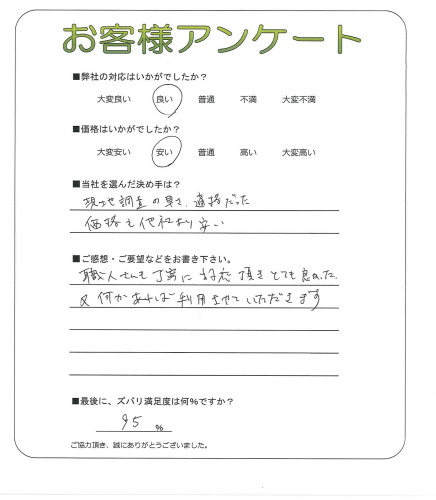 お客様アンケート
■弊社の対応はいかがでしたか?
大変良い 良い 普通 不満 大変不満
■価格はいかがでしたか?
大変安い 安い 普通 高い 大変高い
■当社を選んだ決め手は?
現地調査の早さ、適格だった
価格も他社より安い
■ご感想・ご要望などをお書き下さい。
職人さんも丁寧に対応頂きとても良かった
又何かあれば利用させていただきます
■最後に、ズバリ満足度は何%ですか?
95 %
ご協力頂き、誠にありがとうございました。